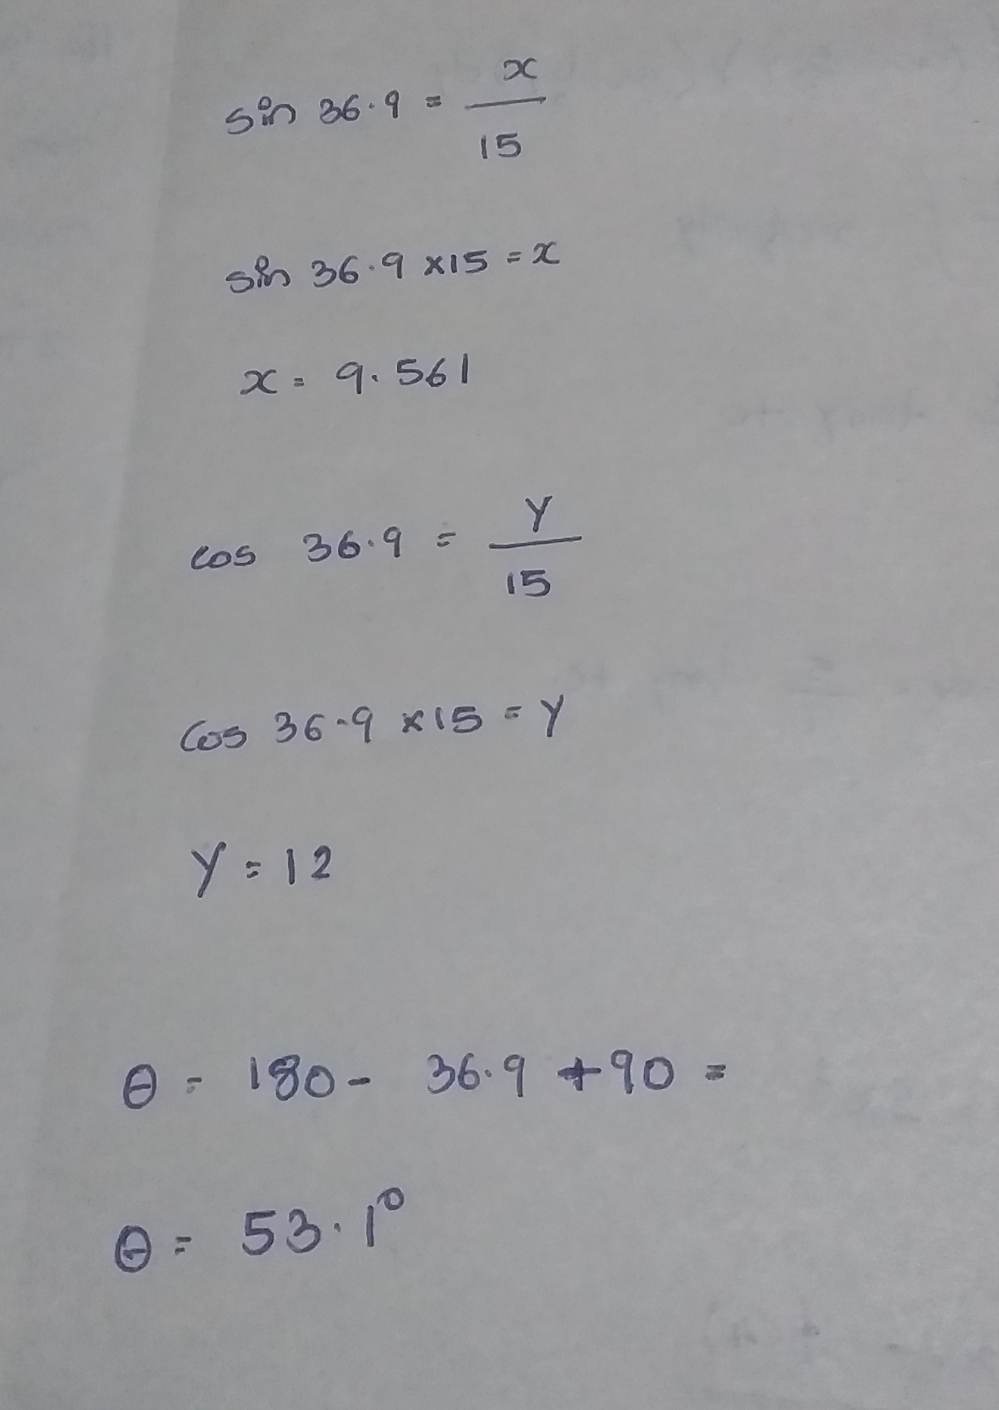 sin 36.9 = x/15
sin 36.9 × 15 = x
x = 9.561
cos 36.9 = Y/15
cos 36.9 × 15 = Y
Y = 12
θ = 180 - 36.9 + 90 =
θ = 53.1°